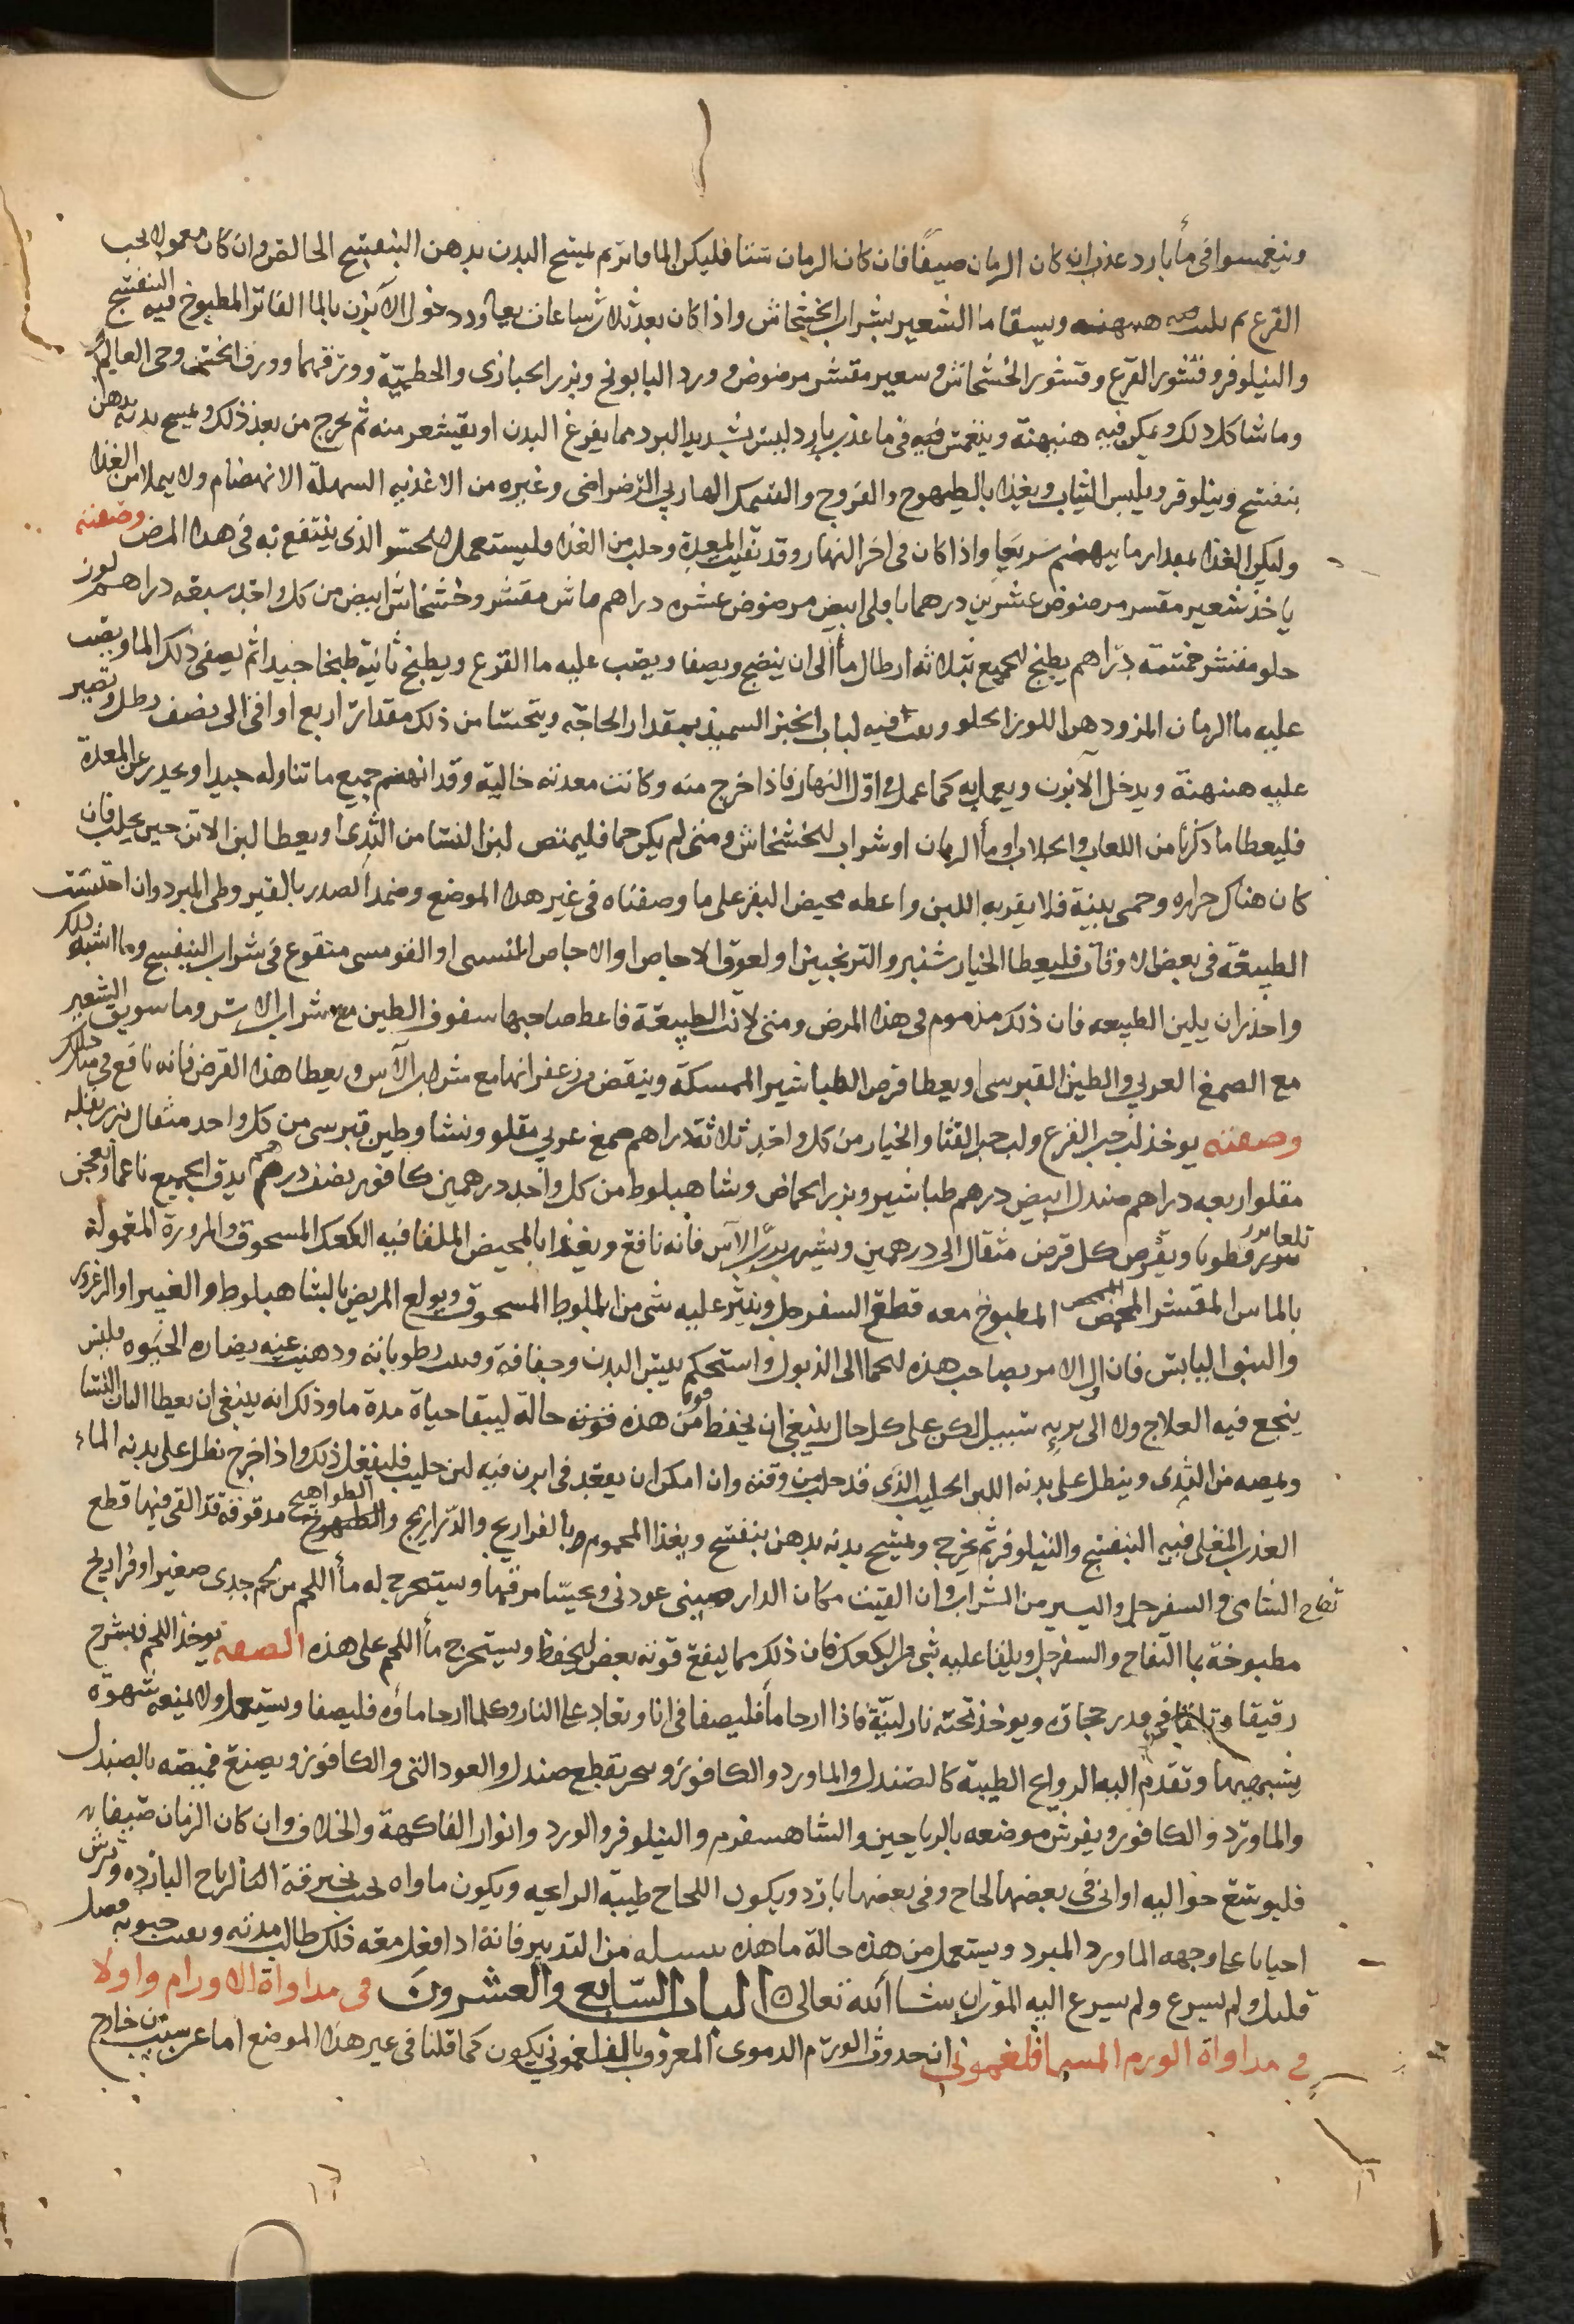 وينغمسوا في مأ بارد عذب ان كان الزمان صيفًا فان كان الزمان شتا فليكن الما فاتر ثم يمسح البدن بدهن البنفسج الخالص وان كان معمولا بحب
القرع ثم يلبث هنيهنه ويسقا ما الشعير بشراب الخشخاش واذا كان بعد ثلاث ساعات يعاود دخول الآبزن بالما الفاتر المطبوخ فيه البنفسج
والنيلوفر وقشور القرع وقشور الخشخاش وشعير مقشر مرضوض وورد البابونج وبزر الخبازى والخطميّة وورقهما وورق الخس وحى العالم
وما شاكل ذلك ويمكن فيه هنيهنة وينغمس فيه في ما عذب بارد ليس بشديد البرد مما يفزع البدن او يقشعر منه ثم يخرج من بعد ذلك ويمسح بدنه بدهن
بنفسج ونيلوفر ويلبس الثياب ويغذا بالطيهوج والفروج والسمك الهاربي الرضراضى وغيره من الاغذيه السهلة الانهضام ولا يملا من الغذا
وليكن الغذا بمقدار ما ينهضم سريعا واذا كان في اخر النهار وقد نقيت المعدة وخلت من الغذا وليستعمل الحسو الذى ينتفع به في هذا المرض وصفته
ياخذ شعير مقسر مرضوض عشرين درهما باقلى ابيض مرضوض عشره دراهم ماش مقشر وخشخاش ابيض من كل واحد سبعه دراهم لوز
حلو مقشر خمسة دراهم يطبخ الجميع بثلاثه ارطال مأ الى ان ينضج ويصفا ويصب عليه ما القرع ويطبخ ثانية طبخا جيدا ثم يصفى ذلك الما ويصب
عليه ما الرمان المز ودهن اللوز الحلو ويفت فيه لباب الخبز السميذ بمقدار الحاجه ويتحسا من ذلك مقدار اربع اواقى الى نصف رطل ويصبر
عليه هنيهنة ويدخل الآبزن ويعمل به كما عمل في اوّل النهار فاذا خرج منه وكانت معدته خالية وقد انهضم جميع ما تناوله جيدا وانحدر عن المعدة
فليعطا ما ذكرنا من اللعاب والجلاب او مأ الرمان او شراب الخشخاش ومتى لم يكن حما فليمتص لبن النسا من الثدى او يعطا لبن الاتن حين يحلب فان
كان هناك حراره وحمى بينة فلا يقربه اللبن واعطه مخيض البقر على ما وصفناه في غير هذا الموضع وضمد الصدر بالقيروطى المبرد وان احتبست
الطبيعة في بعض الاوقات فليعطا الخيار شنبر والترنجبين او لعوق الاجاص او الاجاص المنسى او القومسى منقوع في شراب البنفسج وما اشبه ذلك
واحذر ان يلين الطبيعه فان ذلك مذموم في هذا المرض ومتى لانت الطبيعة فاعط صاحبها سفوف الطين مع شراب الاس وما سويق الشعير
مع الصمغ العربي والطين القبرسى او يعطا قرص الطباشير الممسكة وينقص من زعفرانها مع شراب الآس ويعطا هذا القرص فانه نافع في مثل ذلك
وصفته يوخذ لب حب القرع ولب حب القثا والخيار من كل واحد ثلاثة دراهم صمغ عربي مقلو ونشا وطين قبرسى من كل واحد مثقال بزر بقله
مقلو اربعه دراهم صندل ابيض درهم طباشير وبزر الحماض وشاهبلوط من كل واحد درهمين كافور نصف درهم يدق الجميع ناعما ويعجن
بلعاب بزر قطونا ويقرص كل قرص مثقال الى درهمين ويشرب بربّ الآس فانه نافع ويغذا بالمخيض الملقا فيه الكعك المسحوق والمزورة المعمولة
بالماش المقشر المحمص المطبوخ معه قطع السفرجل وينثر عليه شى من البلوط المسحوق ويولع المريض بالشاهبلوط والغبيرا والزعرور
والنبق اليابس فان ال الامر بصاحب هذه الحما الى الذبول واستحكم يبس البدن وجفافه وفنت رطوباته وذهبت عنه نضاره الحيوه فليس
ينجع فيه العلاج ولا الى بريه سبيل لكن على كل حال ينبغى ان يحفظ من هذه قوته حالة ليبقا حياة مدة ما وذلك انه ينبغى ان يعطا البان النسا
ويمصه من الثدى وينطل على بدنه اللبن الحليب الذى قد حلب من وقته وان امكن ان يقعد في ابزن فيه لبن حليب فليفعل ذلك واذا خرج نطل على بدنه الماء
العذب المغلى فيه البنفسج والنيلوفر ثم يخرج ويمسح بدنه بدهن بنفسج ويغذا المحموم بالفراريج والدراريج والطواهيج مدقوقة قد القى فيها قطع
تفاح الشامى والسفرجل واليسير من الشراب وان القيت مكان الدارصينى عود نى ويحسّا مرقها ويستخرج له مأ اللحم من لحم جدى صغير او فراريج
مطبوخة بما التفاح والسفرجل ويلقا عليه شى من الكعك فان ذلك مما ينفع قوته بعض الحفظ ويستخرج مأ اللحم على هذه الصفه يوخذ اللحم فيشرح
رقيقا ويلقا في قدر حجاره ويوخذ تحته نار لينة فاذا ارخا مأ فليصفا في انا ويعاد على النار وكلما ارخا ماؤه فليصفا ويستعمل ولا يمنعه شهوة
يشتهيها وتقدم اليه الروايح الطيبه كالصندل والماورد والكافور ويبخر بقطع صندل والعود النى والكافور ويصبغ قميصه بالصندل
والماورد والكافور ويفرش موضعه بالرياحين والشاهسفرم والنيلوفر والورد وانوار الفاكهة والخلاف وان كان الزمان صيفا
فليوضع حواليه اوانى في بعضها لخاخ وفي بعضها بارد ويكون اللخاخ طيبه الرايحه ويكون ماواه تحت بخيرقة الخا لرياح البارده ويرش
احيانا على وجهه الماورد المبرد ويستعمل من هذه حالة ما هذه سبيله من التدبير فانه اذا فعل معه ذلك طالت مدته وبقت حيوته فصل
قليل ولم يسرع ولم يسرع اليه الموت ان شا الله تعالى ه الباب السّابع والعشرون في مداواة الاورام واولا
في مداواة الورم المسما فلغمونى ان حدوث الورم الدموى المعروف بالفلغمونى يكون كما قلنا في غير هذا الموضع اما عن سبب من خارج